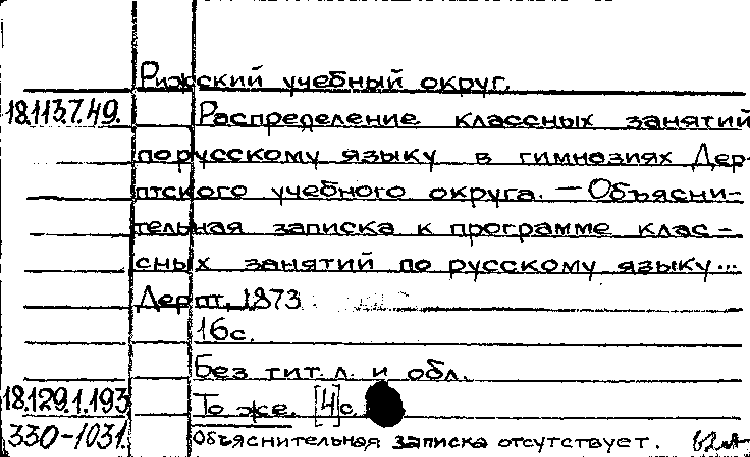 Рижский учебный округ.
18.113.7.49. Распределение классных занятий
по русскому языку в гимназиях Дер-
птского учебного округа. — Объясни-
тельная записка к программе клас-
сных занятий по русскому языку...
Дерпт, 1873
16 с.
Без тит. л. и обл.
18.129.1.193 То же. [4] с.
330-1031. Объяснительная записка отсутствует.